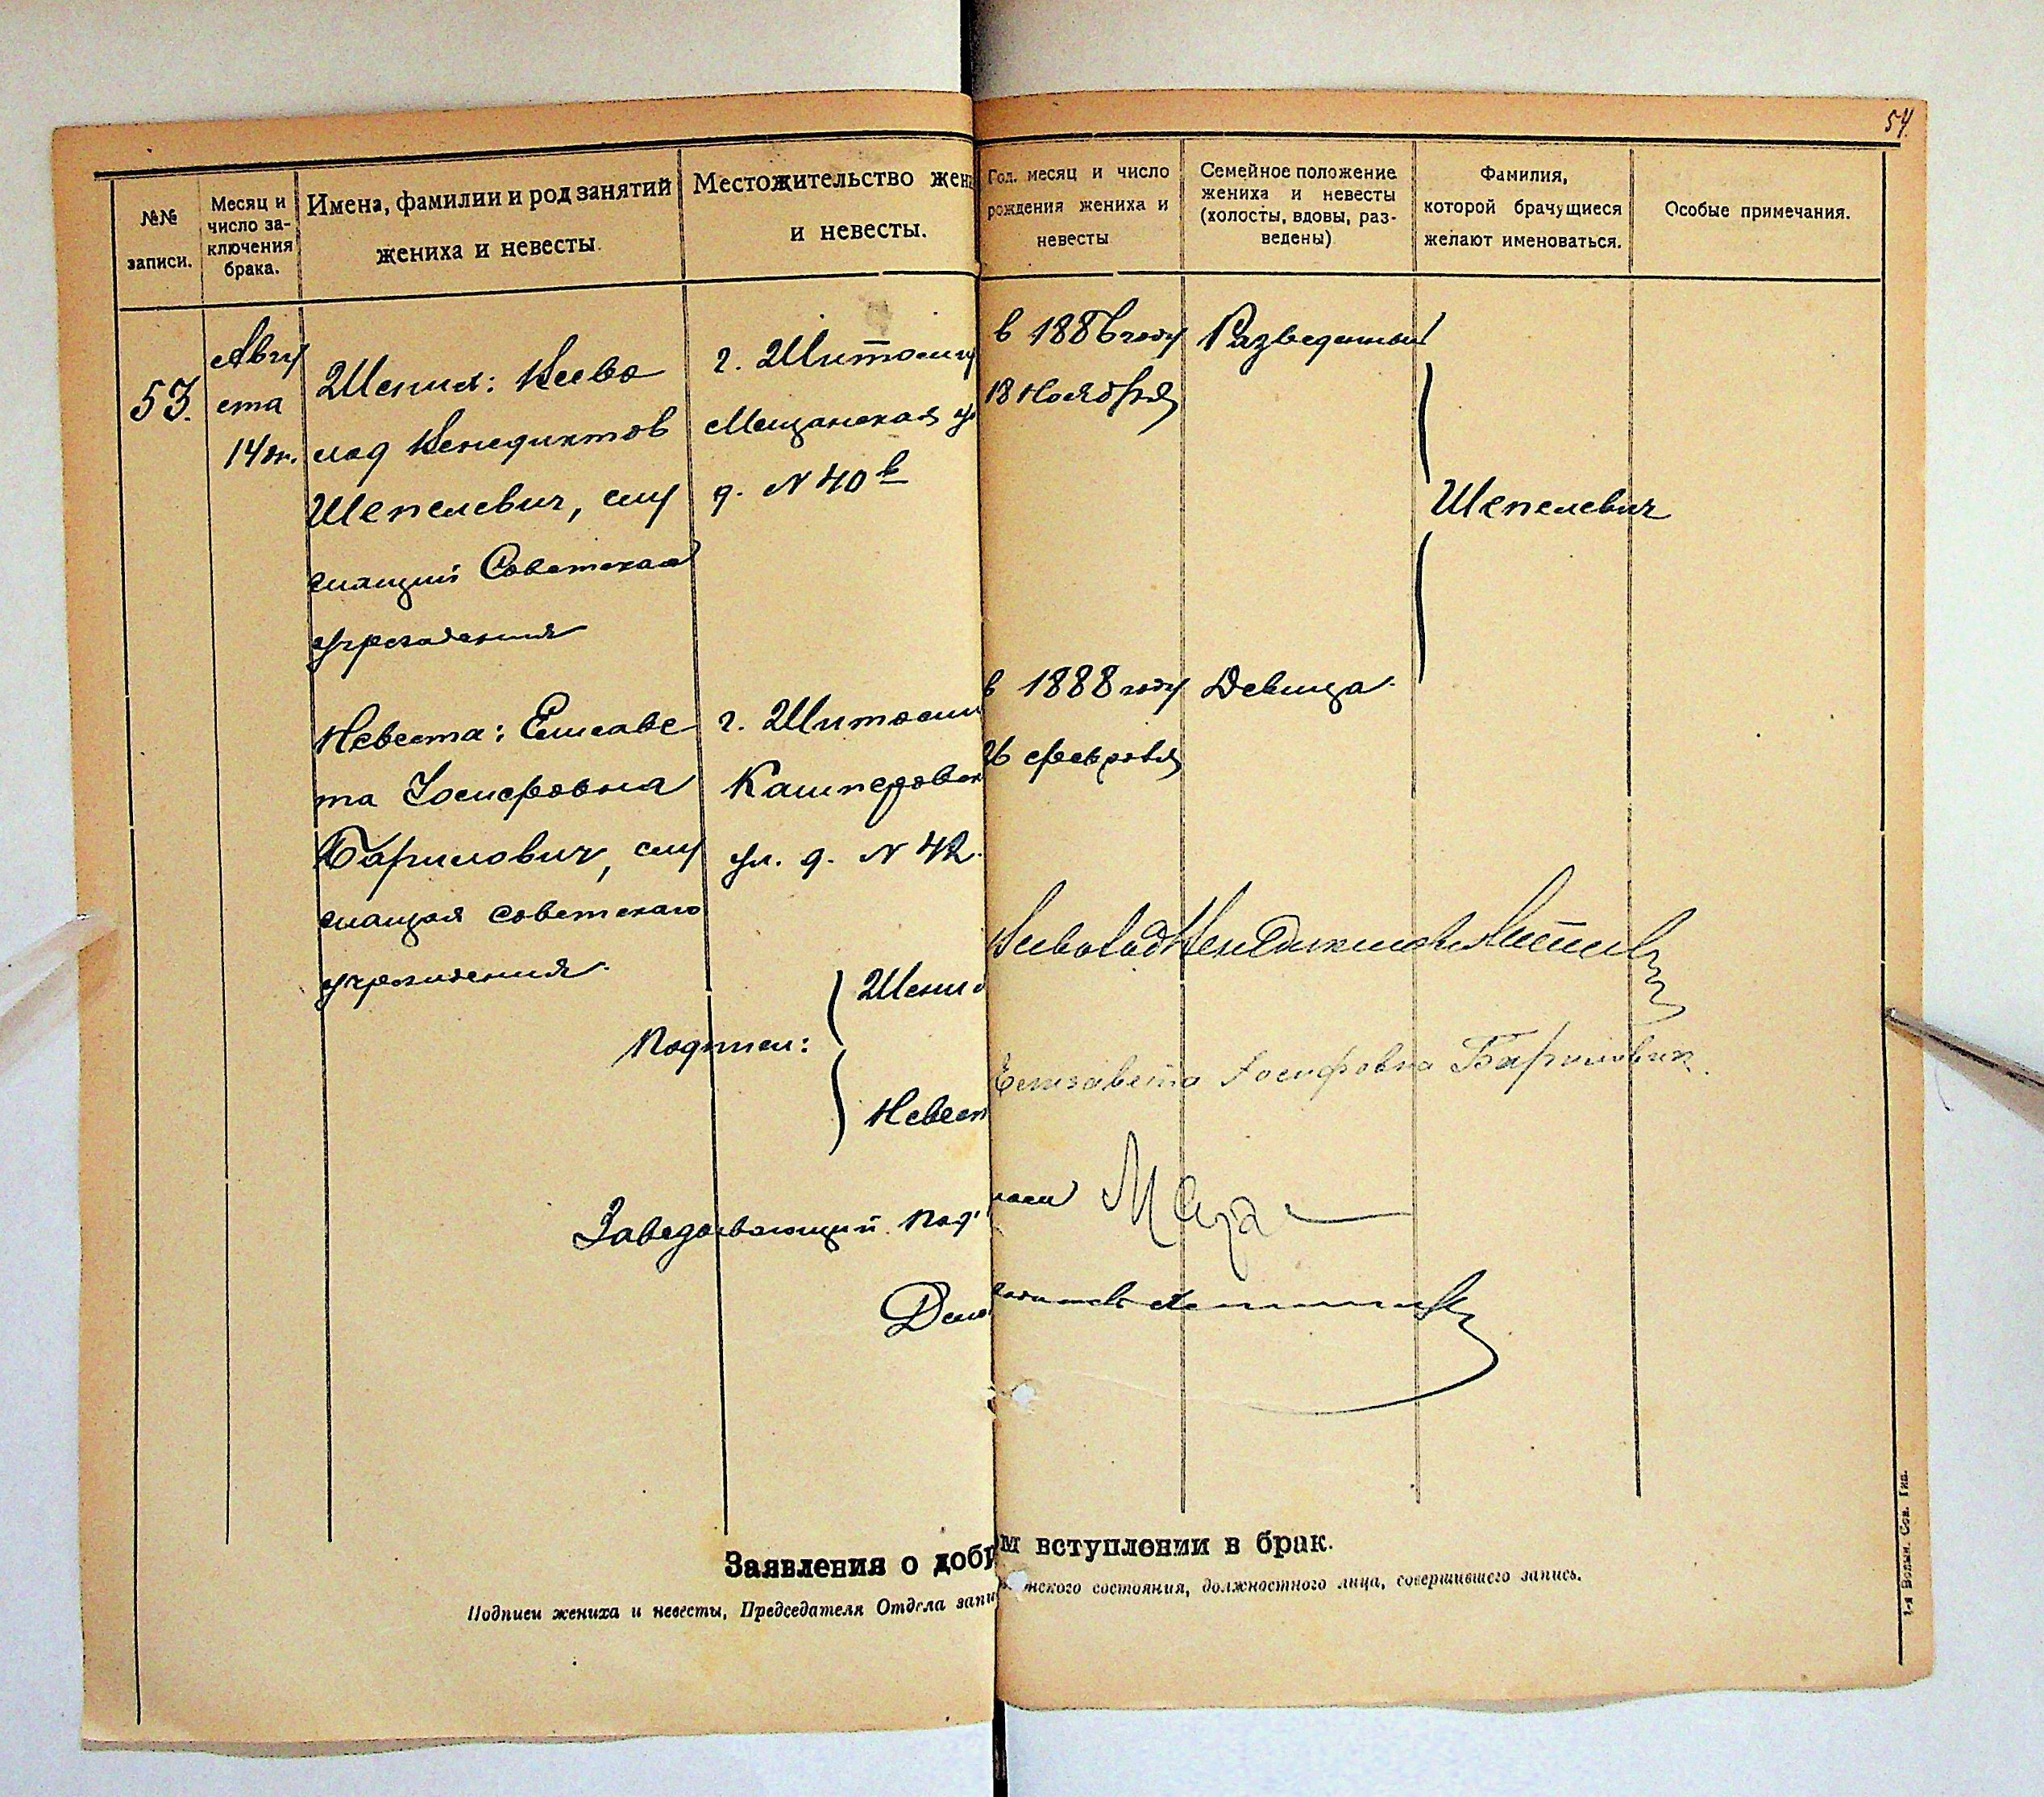 54.
№№
записи.
Месяц и
число за-
ключения
брака.
Имена, фамилии и род занятий
жениха и невесты.
Местожительство жени
и невесты.
Год, месяц и число
рождения жениха и
невесты
Семейное положение
жениха и невесты
(холосты, вдовы, раз-
ведены)
Фамилия,
которой брачущиеся
желают именоваться.
Особые примечания.
53.
Авгу
ста
14 дн.
Жених: Всево
лод Венедиктов
Шепелевич, слу
жащий Советскаго
учреждения
г. Житомир
Мещанская ул
д. N 40в
в 1886 году
18 Ноября
Разведенный
Шепелевич
Невеста: Елисаве
та Иосифовна
Барилович, слу
жащая советскаго
учреждения.
г. Житомир
Кашперовск
ул. д. N 42.
в 1888 году
26 февраля
Девица.
Подписи:
Жених
Всеволод Венедиктович
Невест
Елизавета Иосифовна Барилович.
Заведывающий Под
Дело
Заявления о добр м вступлении в брак.
Подписи жениха и невесты, Председателя Отдела запи нского состояния, должностного лица, совершившего запись.
1-я Волын. Сов. Тип.